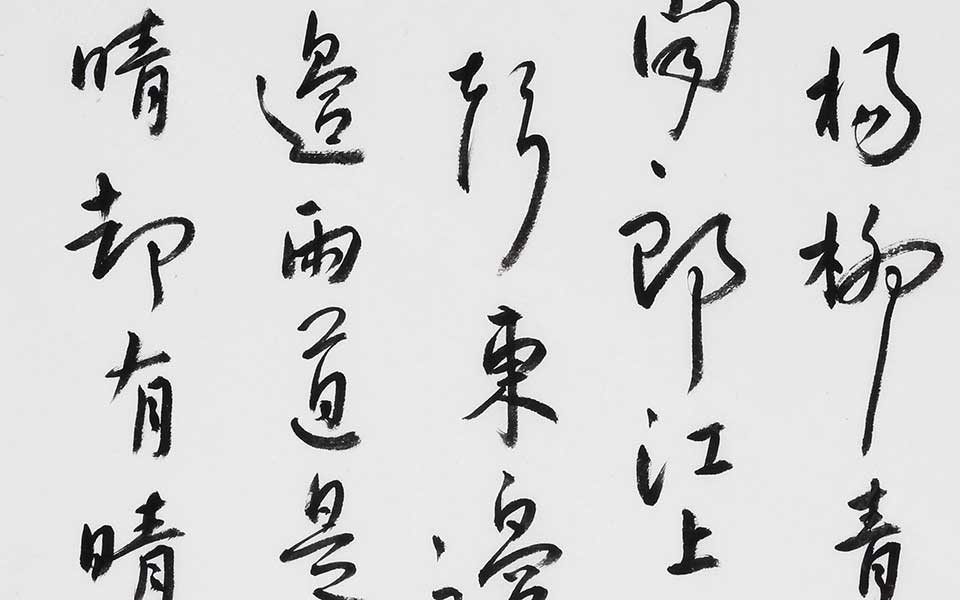 楊柳青
聞郎江上
聲東邊
邊雨道是
晴却有晴